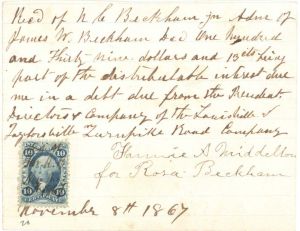 Recd of N C Beckham jr Admr of
James W. Beckham Decd One hundred
and Thirty nine dollars and 13 cts being
part of the distributable interest due
me in a debt due from the President
Directors & Company of the Louisville &
Taylorsville Turnpike Road Company
Fannie A Middelton
for Rosa Beckham
10 10
10 10
November 8th 1867